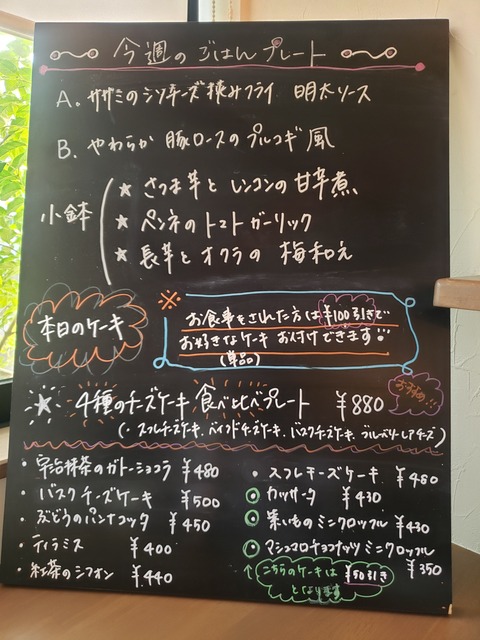 今週のごはんプレート
A. ササミのシソチーズ挟みフライ 明太ソース
B. やわらか 豚ロースのプルコギ風
小鉢
★ さつま芋とレンコンの甘辛煮
★ ペンネのトマトガーリック
★ 長芋とオクラの 梅和え
本日のケーキ
※ お食事をされた方は¥100引きで…
お好きなケーキ お付けできます!!
(単品)
おすすめ!!
★ 4種のチーズケーキ 食べ比べプレート ¥880
(・スフレチーズケーキ、ベイクドチーズケーキ、バスクチーズケーキ、ブルーベリーレアチーズ)
・宇治抹茶のガトーショコラ ¥480
・バスクチーズケーキ ¥500
・ぶどうのパンナコッタ ¥450
・ティラミス ¥400
・紅茶のシフォン ¥440
・スフレチーズケーキ ¥480
カッサータ ¥430
紫いものミニクロッフル ¥430
マシュマロチョコナッツ ミニクロッフル
¥350
↑ こちらのケーキは ¥50引き
となります